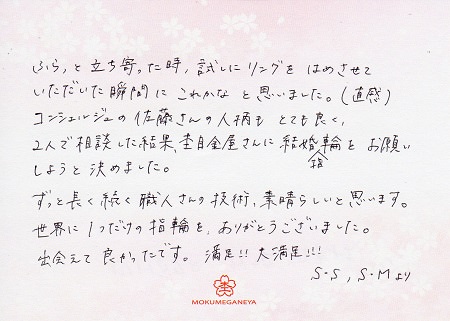 ふらっと立ち寄った時、試しにリングをはめさせて
いただいた瞬間にこれかなと思いました。(直感)
コンシェルジュの佐藤さんの人柄もとても良く、
2人で相談した結果、杢目金屋さんに結婚指輪をお願い
しようと決めました。
ずっと長く続く職人さんの技術、素晴らしいと思います。
世界に1つだけの指輪を、ありがとうございました。
出会えて良かったです。満足!!大満足!!!
S・S, S・Mより
MOKUMEGANEYA